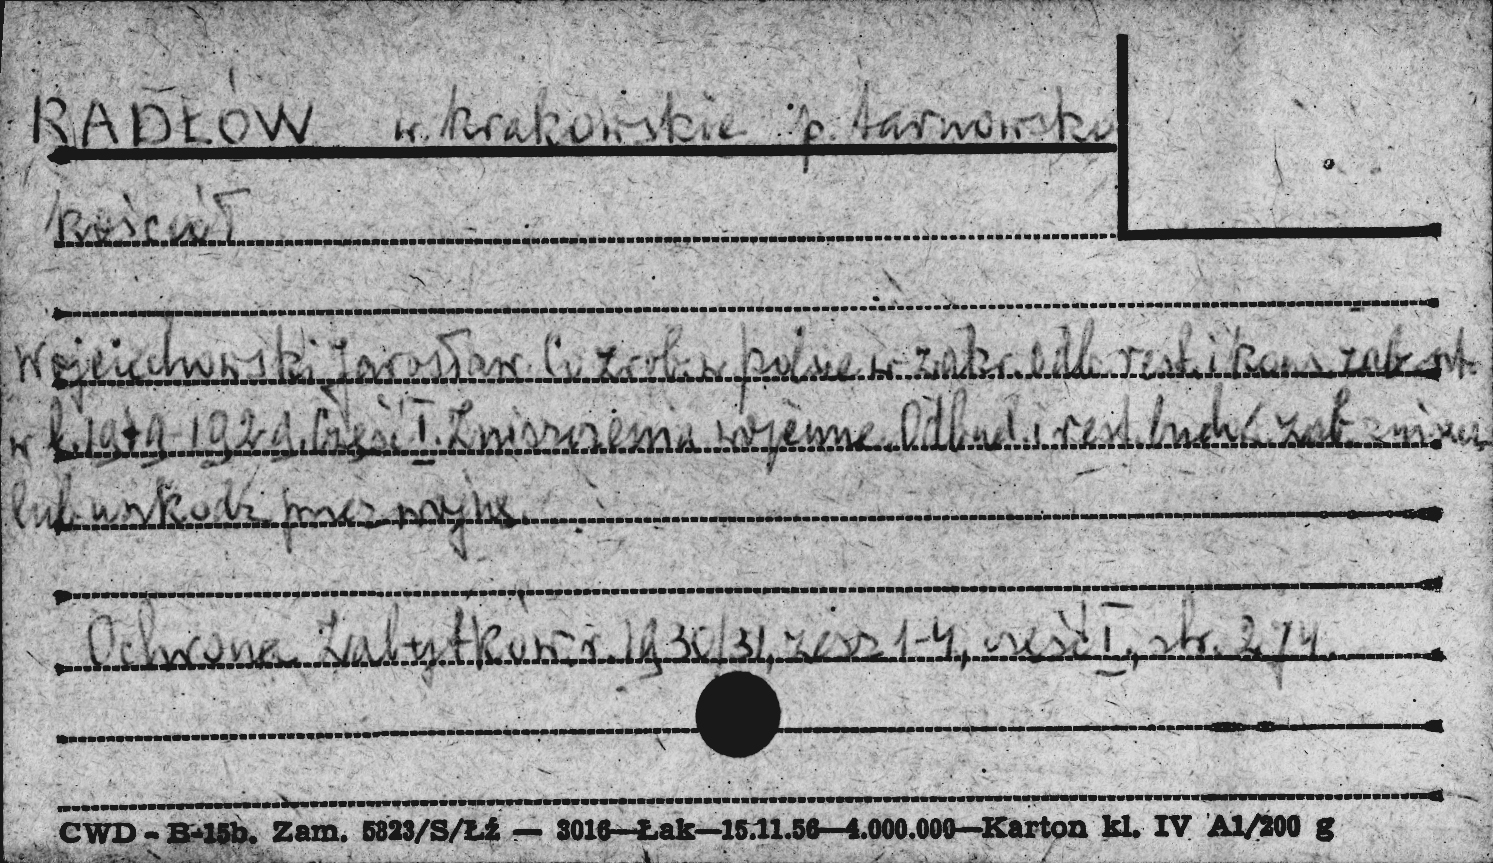 RADŁÓW w. krakowskie p. tarnowsko
kościół
Wojciechowski Jarosław. Co zrob. w polsce w zakr. odb. rest. i kons. zab. szt.
w l. 1919-1929. Część I. Zniszczenia wojenne. Odbud. i rest. bud. zab. zniszcz.
lub uszkodz. przez wojnę.
Ochrona Zabytków r. 1930/31, zesz 1-4, część I, str. 274.
CWD - B-15b. Zam. 5823/S/Łź — 3016—Łak—15.11.56—4.000.000—Karton kl. IV A1/200 g